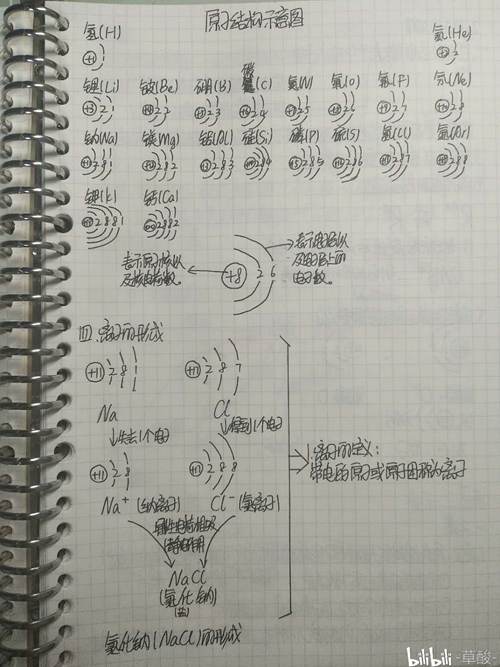 原子结构示意图
氢(H) 氦(He)
+1 1 +2 2
锂(Li) 铍(Be) 硼(B) 碳(C) 氮(N) 氧(O) 氟(F) 氖(Ne)
+3 2 1 +4 2 2 +5 2 3 +6 2 4 +7 2 5 +8 2 6 +9 2 7 +10 2 8
钠(Na) 镁(Mg) 铝(Al) 硅(Si) 磷(P) 硫(S) 氯(Cl) 氩(Ar)
+11 2 8 1 +12 2 8 2 +13 2 8 3 +14 2 8 4 +15 2 8 5 +16 2 8 6 +17 2 8 7 +18 2 8 8
钾(K) 钙(Ca)
+19 2 8 8 1 +20 2 8 8 2
表示原子核以
及核电荷数。
+8 2 6
表示电子层以
及电子层上的
电子数。
四.离子的形成
+11 2 8 1 +17 2 8 7
Na Cl
↓失去1个电子 ↓得到1个电子
+11 2 8 +17 2 8 8
Na⁺(钠离子) Cl⁻(氯离子)
电荷相吸
静电作用
NaCl
(氯化钠)
(盐)
1.离子的定义:
带电的原子或原子团称为离子
氯化钠(NaCl)的形成
bilibili -草酸-